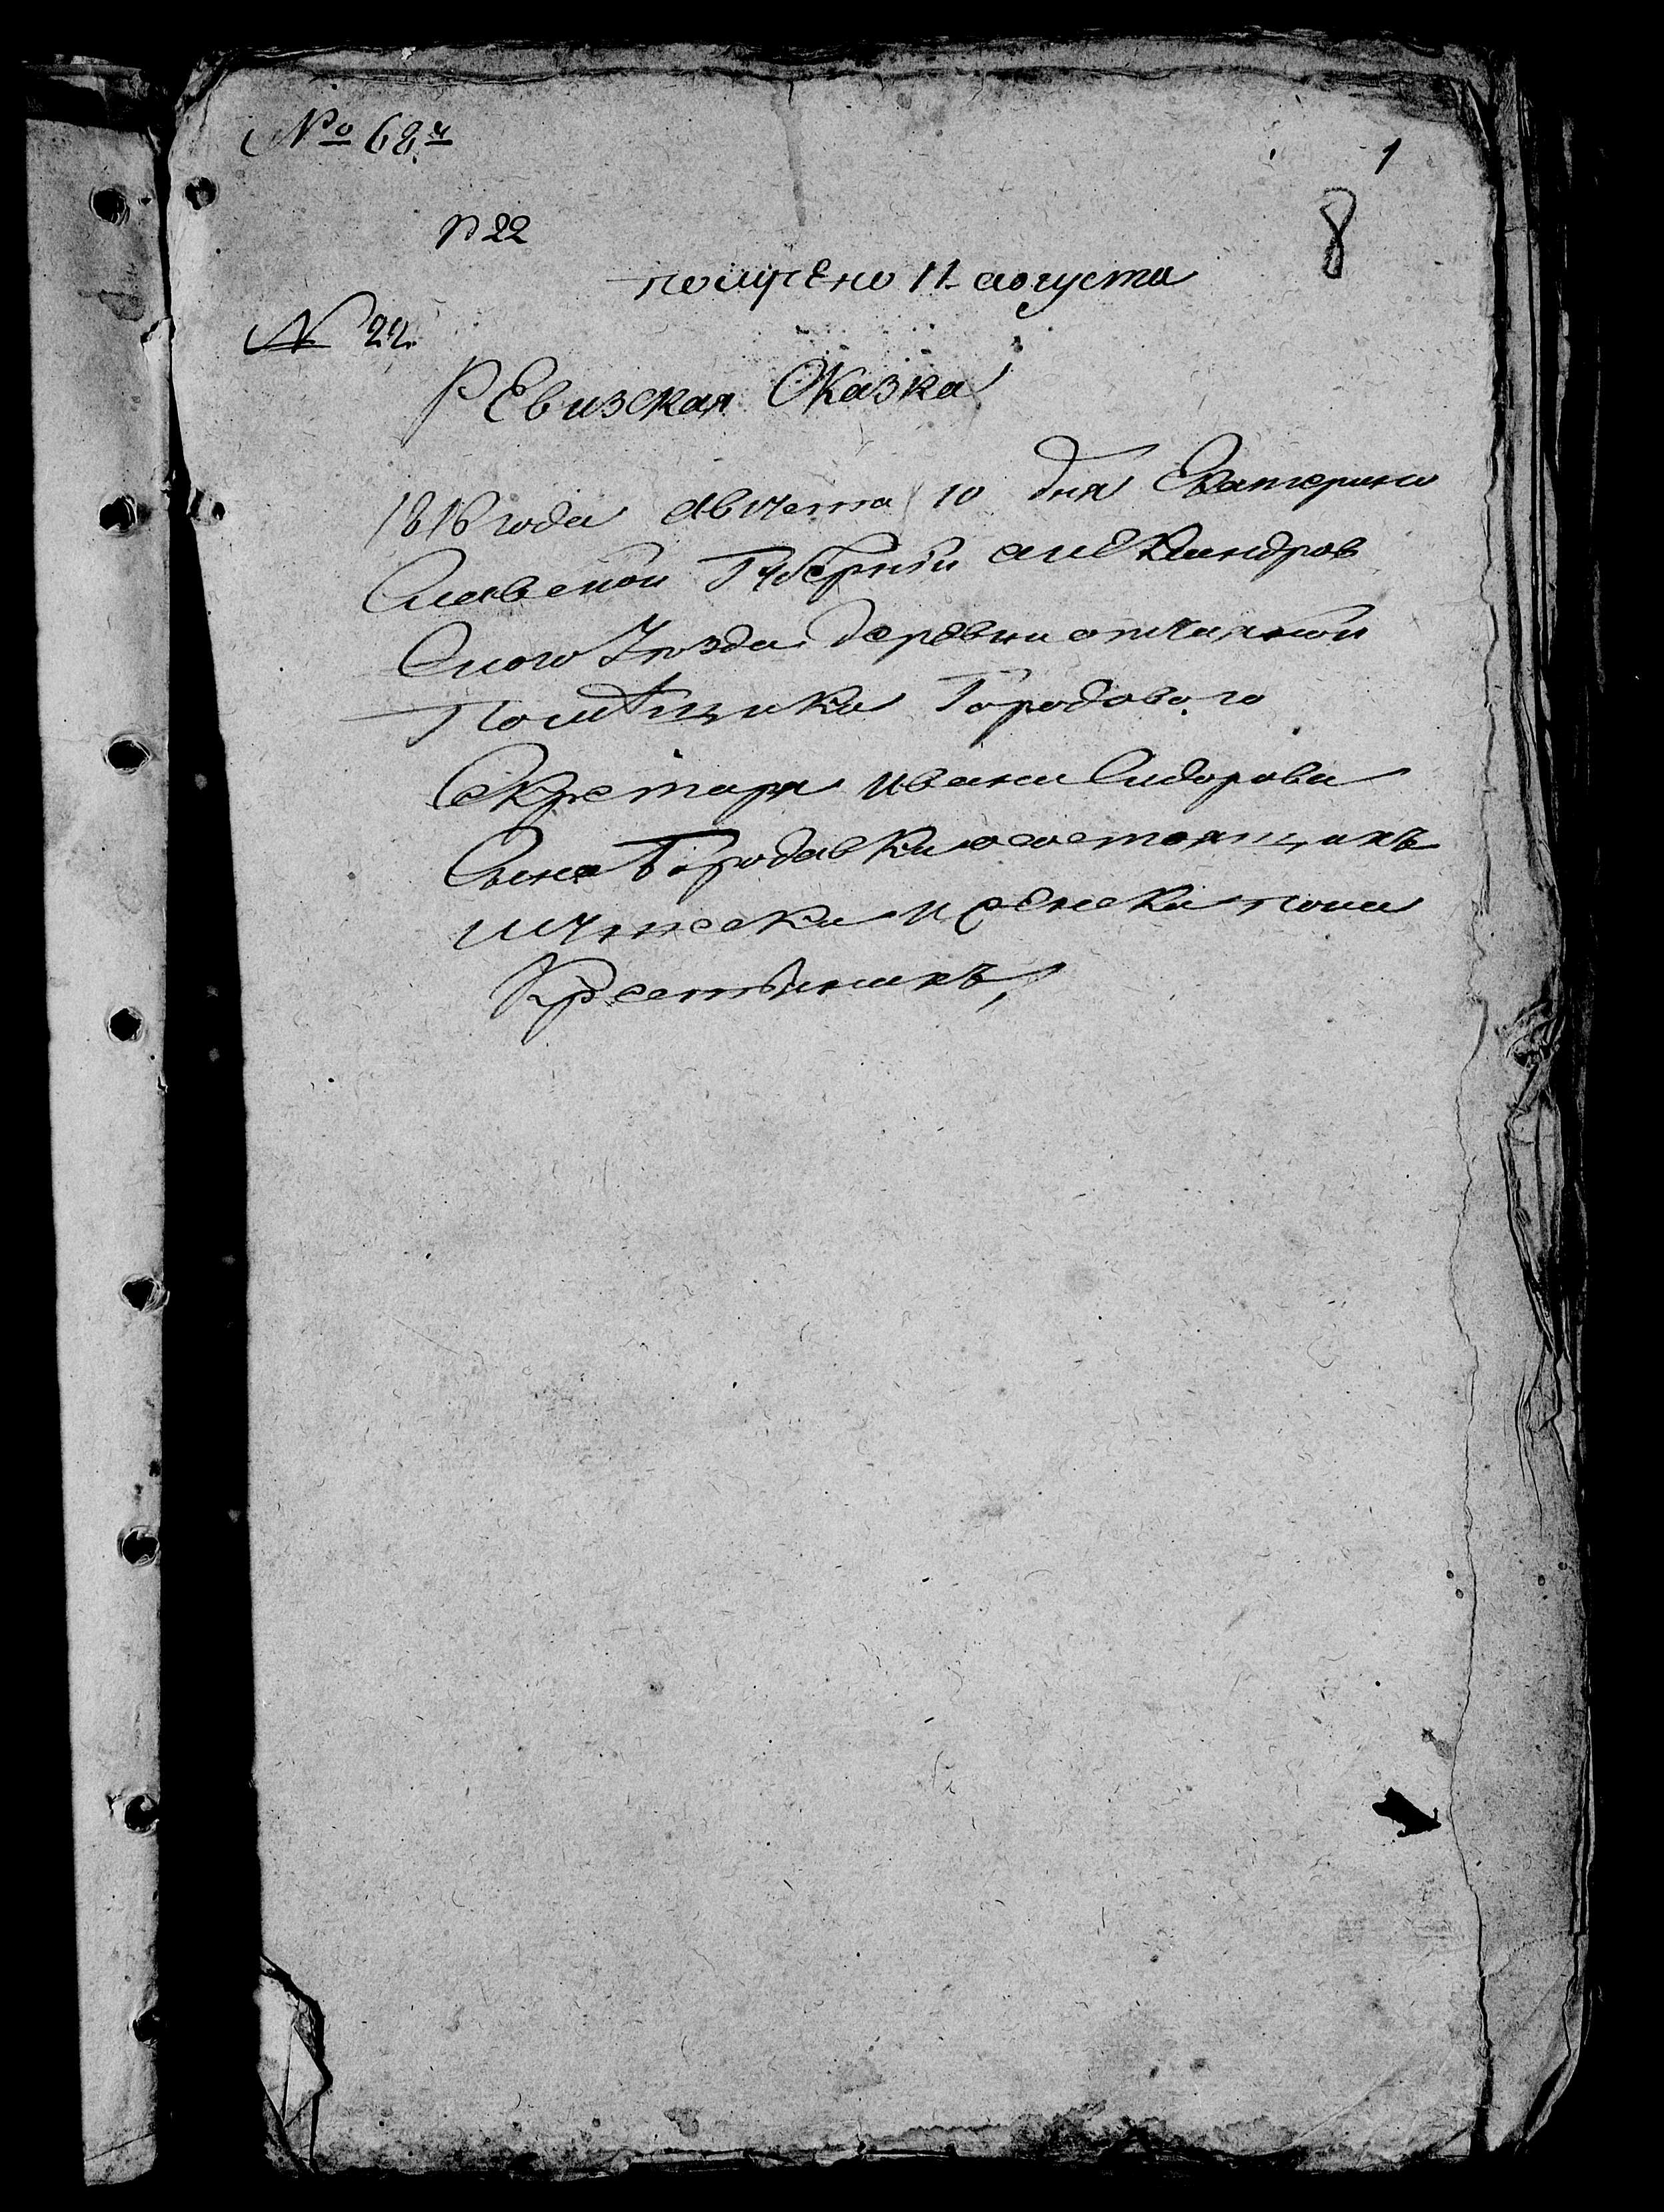 № 68.й
1
№ 22
8
получено 11 августа
№ 22.
РЕвизская Сказка
1816 года Августа 10 дня Екатерино
Славской Губерніи алеКсандров
Скаго Уѣзда деревни отчаянной
ПомѢщика Городоваго
СеКретаря ивана Сидорова
Сына Бородавки о состоящихъ
мужеска и женска пола
Крестьянахъ,